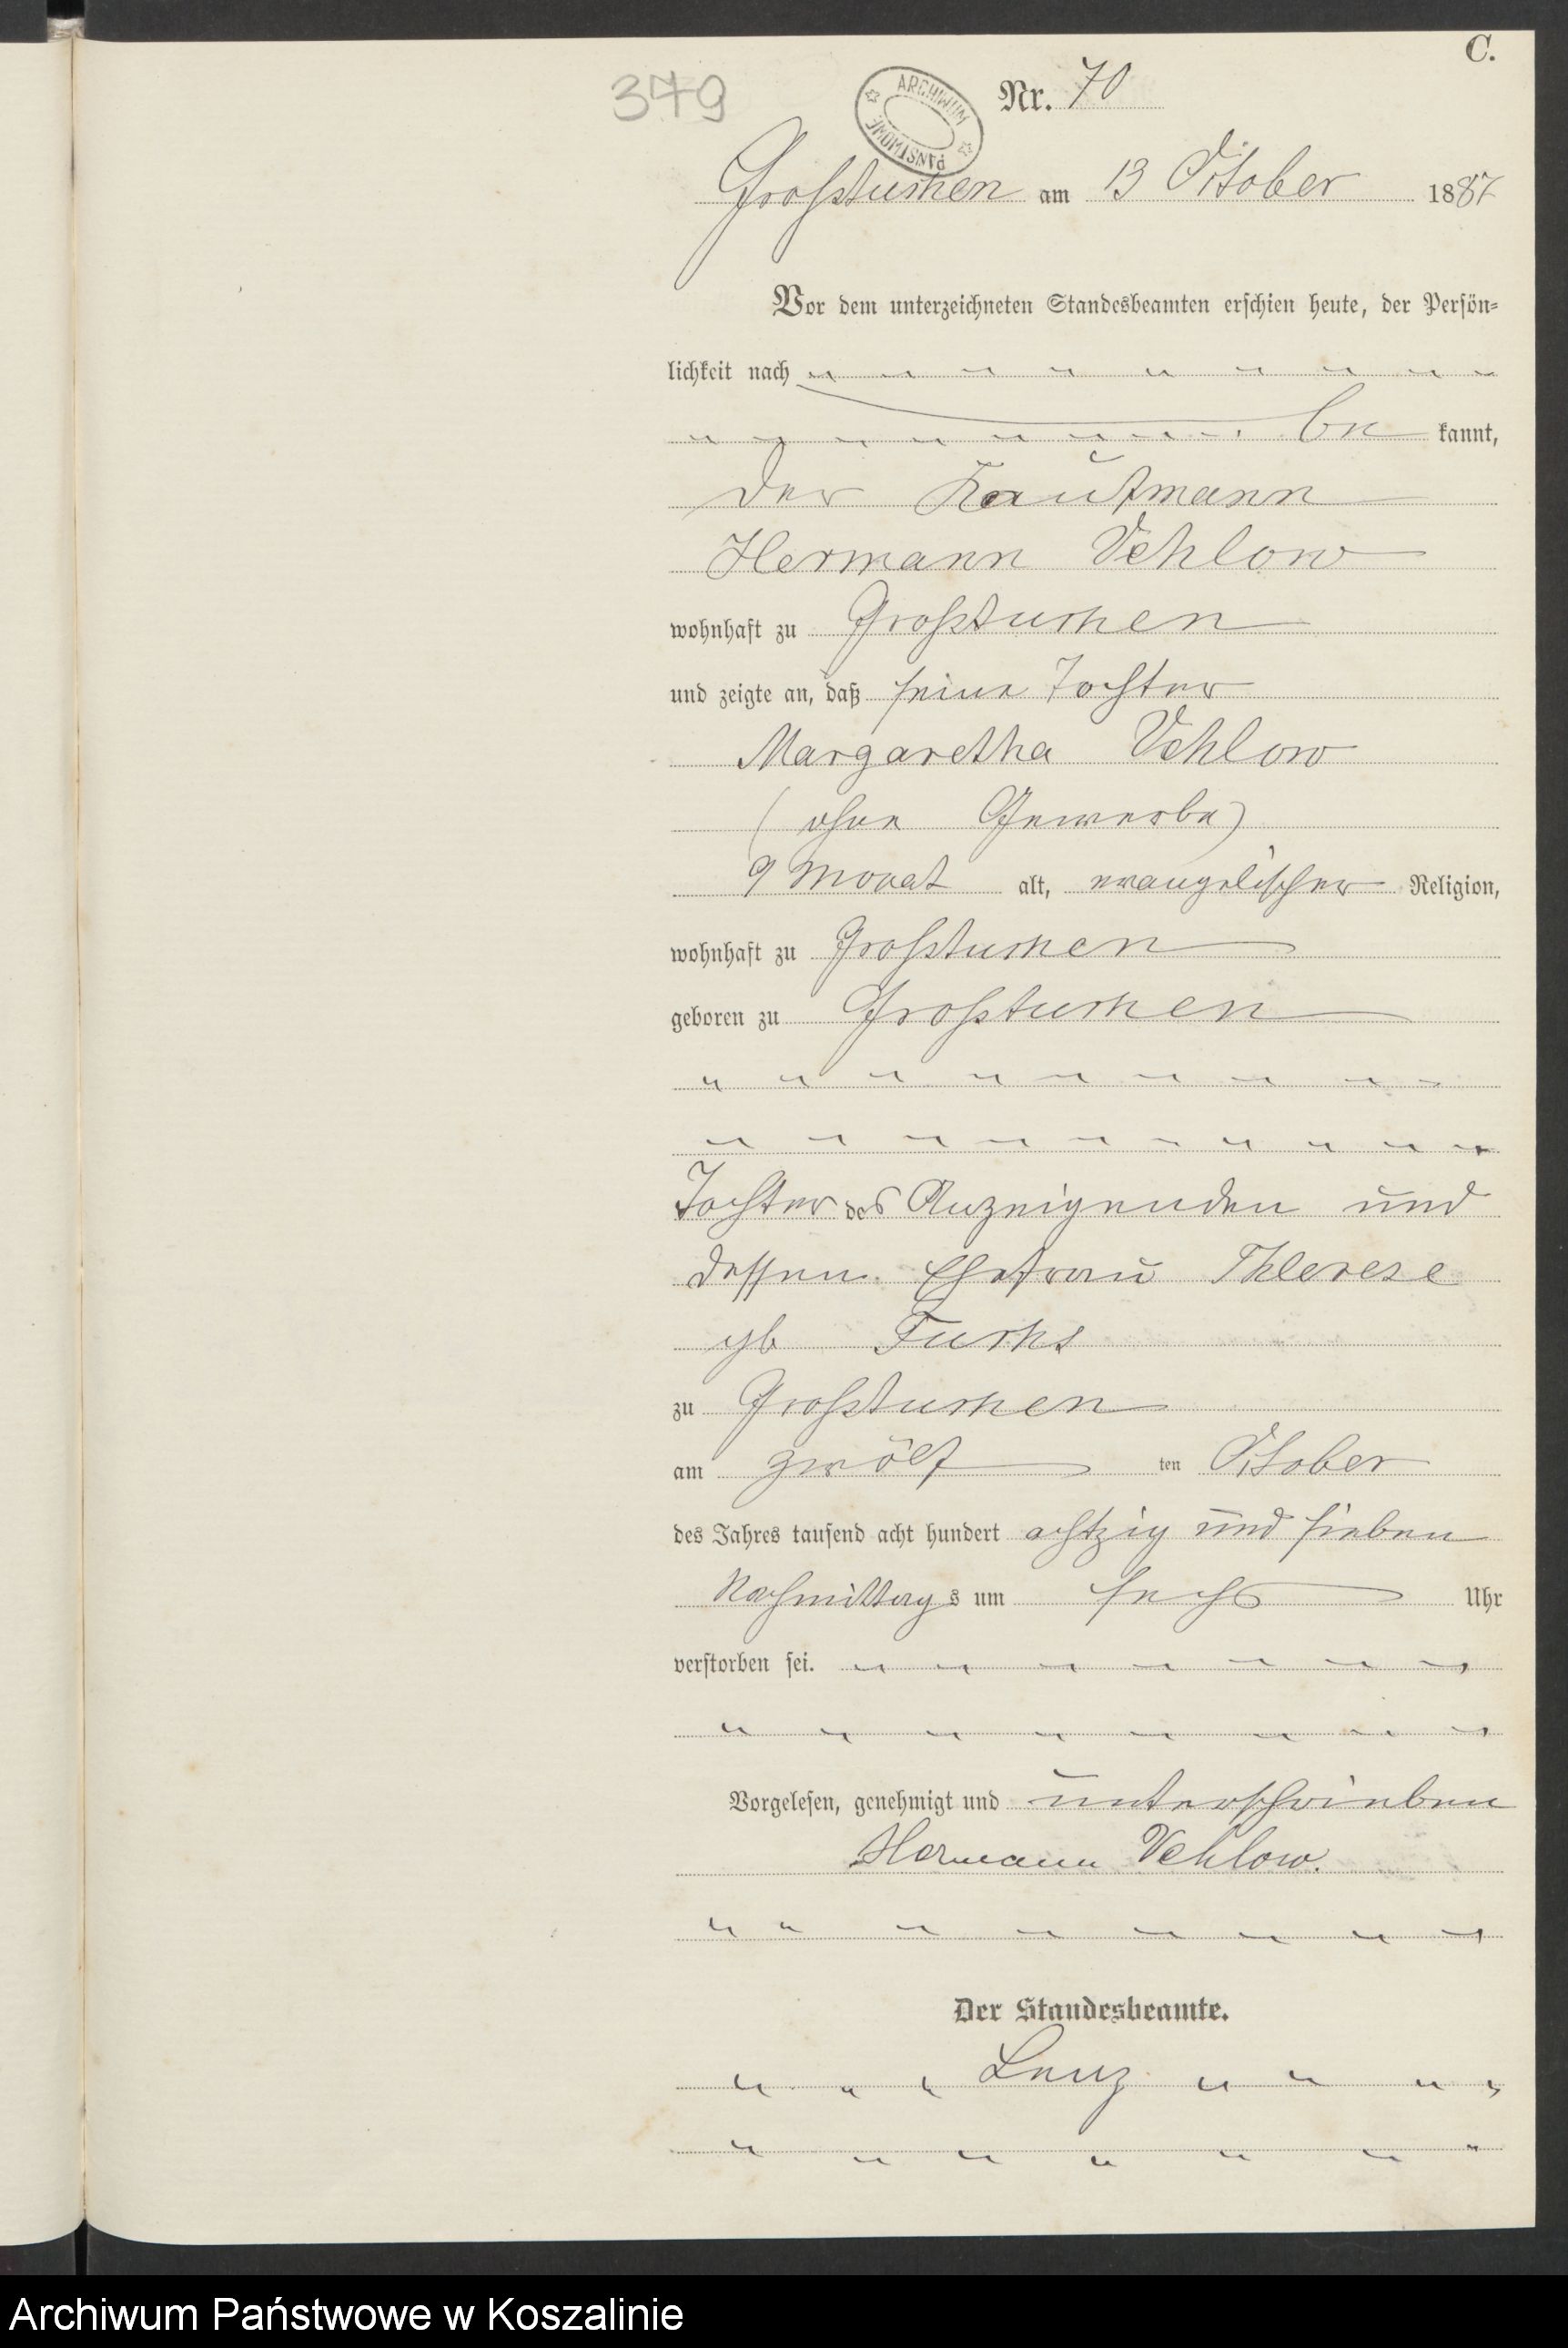 C.
379
ARCHIWUM PAŃSTWOWE
Nr. 70
Großtuchen am 13 October 1887
Vor dem unterzeichneten Standesbeamten erschien heute, der Persön=
lichkeit nach
be kannt,
der Kaufmann
Hermann Vehlow
wohnhaft zu Großtuchen
und zeigte an, daß seine Tochter
Margaretha Vehlow
(ohne Gewerbe)
9 Monat alt, evangelischer Religion,
wohnhaft zu Großtuchen
geboren zu Großtuchen
Tochter des Anzeigenden und
dessen Ehefrau Therese
gb Fuchs
zu Großtuchen
am zwölf ten October
des Jahres tausend acht hundert achtzig und sieben
Nachmittags um sechs Uhr
verstorben sei.
Vorgelesen, genehmigt und unterschrieben
Hermann Vehlow.
Der Standesbeamte.
Lenz
Archiwum Państwowe w Koszalinie